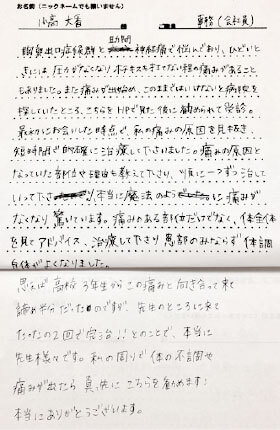 お名前(ニックネームでも構いません)
事務(会社員)
肋間
胸郭出口症候群と神経痛で悩んでおり、ひどいと
きには圧がなくなり息もできない程の痛みがあること
もありました。また痛みが出始め、このままではいけないと病院を
探していたところ、こちらをHPで見た後に勧められて受診。
最初にお会いした時点で、私の痛みの原因を見抜き
短時間で的確に治療して下さいました。痛みの原因と
なっていた部位や理由も教えて下さり、順に一つずつ治して
いって下さり、本当に魔法のように痛みが
なくなり驚いています。痛みのある部位だけでなく、体全体
を見てアドバイス、治療して下さり患部のみならず体調
自体がよくなりました。
思えば高校3年生からこの痛みと向き合って来て
諦め半分だったのですが、先生のところに来て
たったの2回で完治!!とのことで、本当に
先生様々です。私の周りで体の不調や
痛みが出たら真先にこちらを勧めます!
本当にありがとうございます。